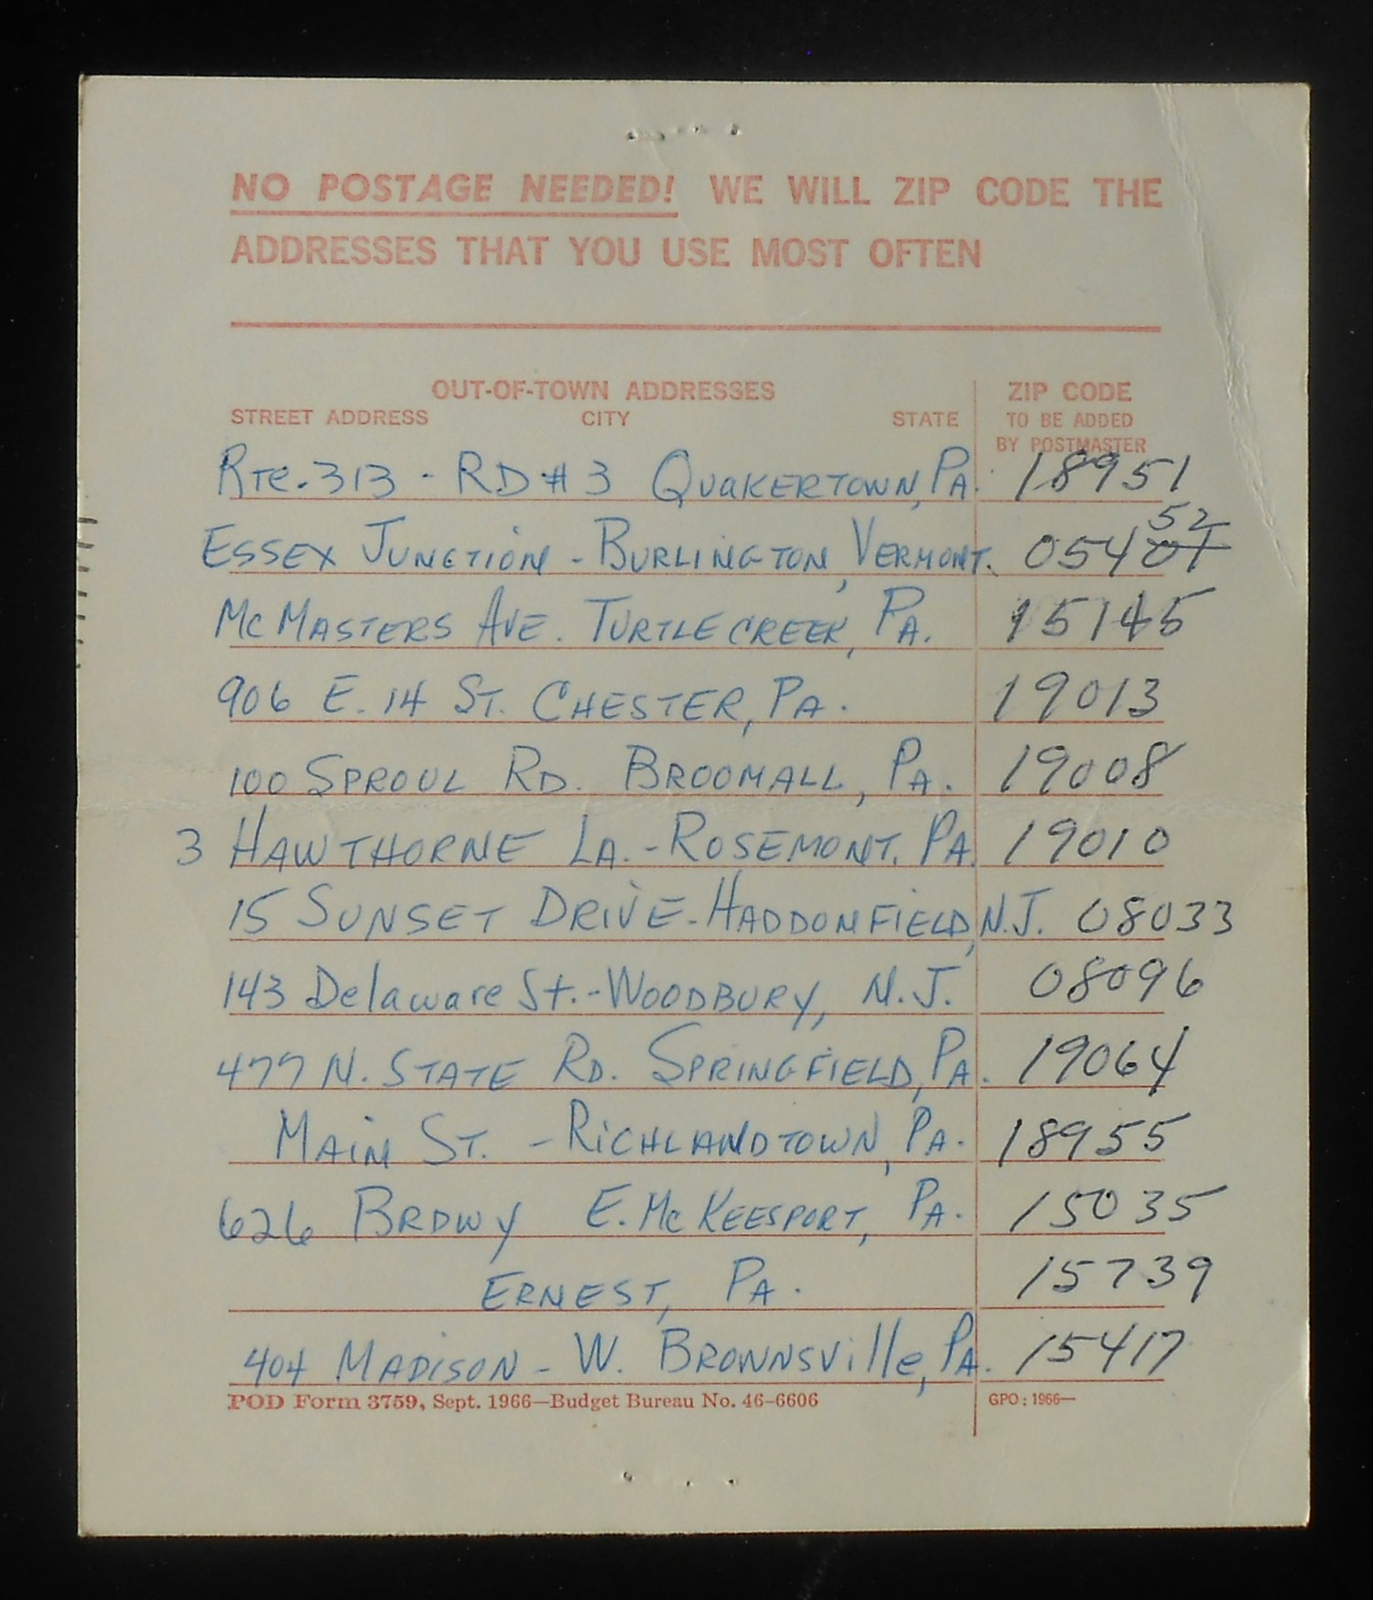 NO POSTAGE NEEDED! WE WILL ZIP CODE THE
ADDRESSES THAT YOU USE MOST OFTEN
OUT-OF-TOWN ADDRESSES ZIP CODE
STREET ADDRESS CITY STATE TO BE ADDED
BY POSTMASTER
RTE. 313 - RD # 3 QUAKERTOWN, PA. 18951
52
ESSEX JUNCTION - BURLINGTON, VERMONT. 05401
MCMASTERS AVE. TURTLE CREEK, PA. 15145
906 E. 14 ST. CHESTER, PA. 19013
100 SPROUL RD. BROOMALL, PA. 19008
3 HAWTHORNE LA. - ROSEMONT, PA. 19010
15 SUNSET DRIVE - HADDONFIELD, N.J. 08033
143 Delaware St. - WOODBURY, N.J. 08096
477 N. STATE RD. SPRINGFIELD, PA. 19064
MAIN ST. - RICHLANDTOWN, PA. 18955
626 BRDWY E. MCKEESPORT, PA. 15035
ERNEST, PA. 15739
404 MADISON - W. BROWNSVille, PA. 15417
POD Form 3759, Sept. 1966—Budget Bureau No. 46-6606 GPO: 1966—